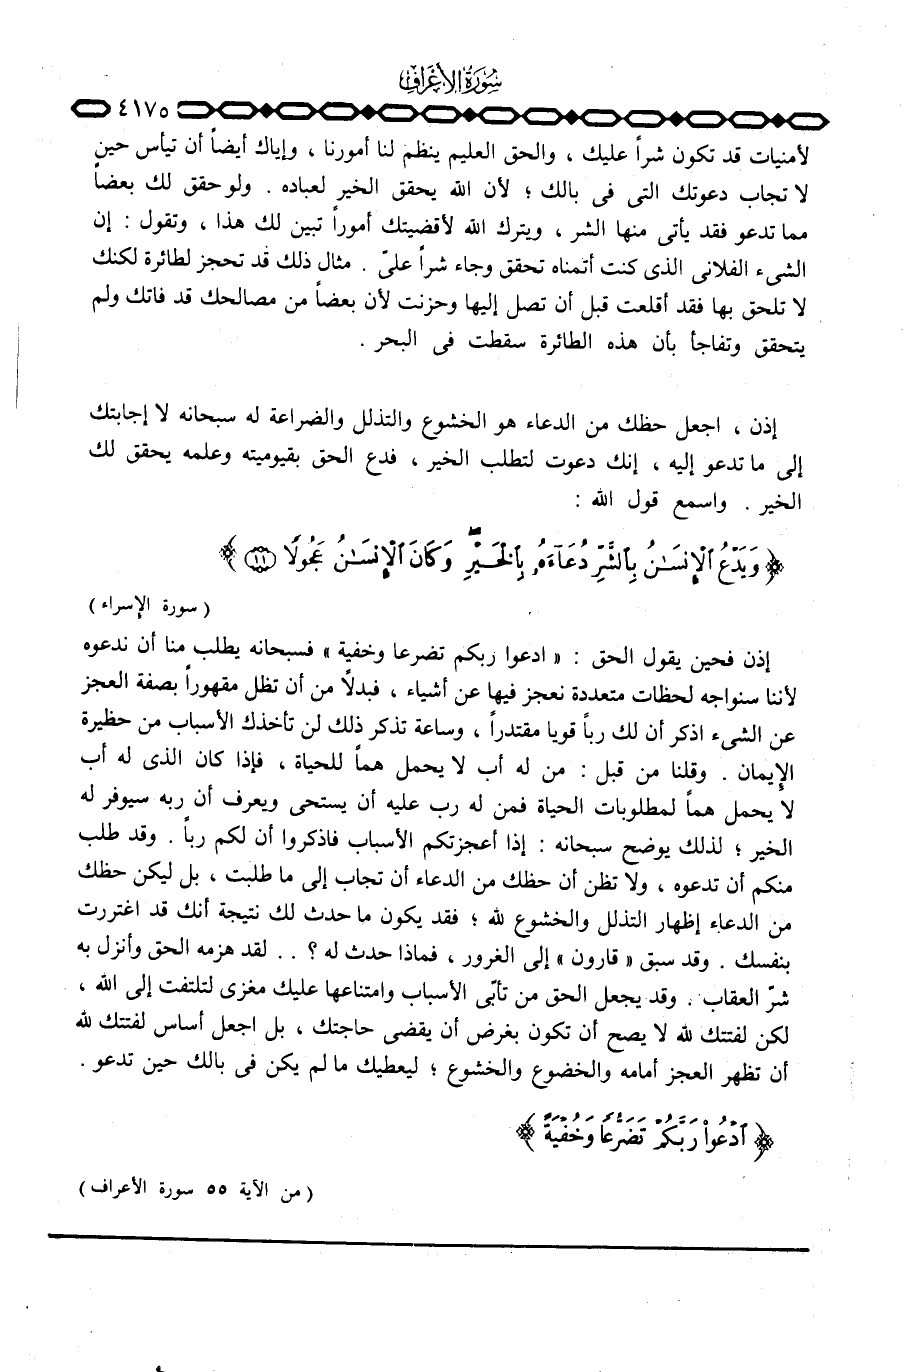 سورة الأعراف
٤١٧٥
لأمنيات قد تكون شراً عليك ، والحق العليم ينظم لنا أمورنا ، وإياك أيضاً أن تيأس حين
لا تجاب دعوتك التى فى بالك ؛ لأن الله يحقق الخير لعباده . ولو حقق لك بعضاً
مما تدعو فقد يأتى منها الشر ، ويترك الله لأقضيتك أموراً تبين لك هذا ، وتقول : إن
الشىء الفلانى الذى كنت أتمناه تحقق وجاء شراً علىّ . مثال ذلك قد تحجز لطائرة لكنك
لا تلحق بها فقد أقلعت قبل أن تصل إليها وحزنت لأن بعضاً من مصالحك قد فاتك ولم
يتحقق وتفاجأ بأن هذه الطائرة سقطت فى البحر .
إذن ، اجعل حظك من الدعاء هو الخشوع والتذلل والضراعة له سبحانه لا إجابتك
إلى ما تدعو إليه ، إنك دعوت لتطلب الخير ، فدع الحق بقيوميته وعلمه يحقق لك
الخير . واسمع قول الله :
﴿ وَيَدْعُ ٱلْإِنسَـٰنُ بِٱلشَّرِّ دُعَآءَهُۥ بِٱلْخَيْرِ ۖ وَكَانَ ٱلْإِنسَـٰنُ عَجُولًا ⑪ ﴾
( سورة الإسراء )
إذن فحين يقول الحق : « ادعوا ربكم تضرعا وخفية » فسبحانه يطلب منا أن ندعوه
لأننا سنواجه لحظات متعددة نعجز فيها عن أشياء ، فبدلاً من أن تظل مقهوراً بصفة العجز
عن الشىء اذكر أن لك رباً قويا مقتدراً ، وساعة تذكر ذلك لن تأخذك الأسباب من حظيرة
الإيمان . وقلنا من قبل : من له أب لا يحمل هماً للحياة ، فإذا كان الذى له أب
لا يحمل هماً لمطلوبات الحياة فمن له رب عليه أن يستحى ويعرف أن ربه سيوفر له
الخير ؛ لذلك يوضح سبحانه : إذا أعجزتكم الأسباب فاذكروا أن لكم رباً . وقد طلب
منكم أن تدعوه ، ولا تظن أن حظك من الدعاء أن تجاب إلى ما طلبت ، بل ليكن حظك
من الدعاء إظهار التذلل والخشوع لله ؛ فقد يكون ما حدث لك نتيجة أنك قد اغتررت
بنفسك . وقد سبق « قارون » إلى الغرور ، فماذا حدث له ؟ . . لقد هزمه الحق وأنزل به
شرّ العقاب . وقد يجعل الحق من تأبّى الأسباب وامتناعها عليك مغزى لتلتفت إلى الله ،
لكن لفتتك لله لا يصح أن تكون بغرض أن يقضى حاجتك ، بل اجعل أساس لفتتك لله
أن تظهر العجز أمامه والخضوع والخشوع ؛ ليعطيك ما لم يكن فى بالك حين تدعو .
﴿ ٱدْعُوا۟ رَبَّكُمْ تَضَرُّعًا وَخُفْيَةً ﴾
( من الآية ٥٥ سورة الأعراف )